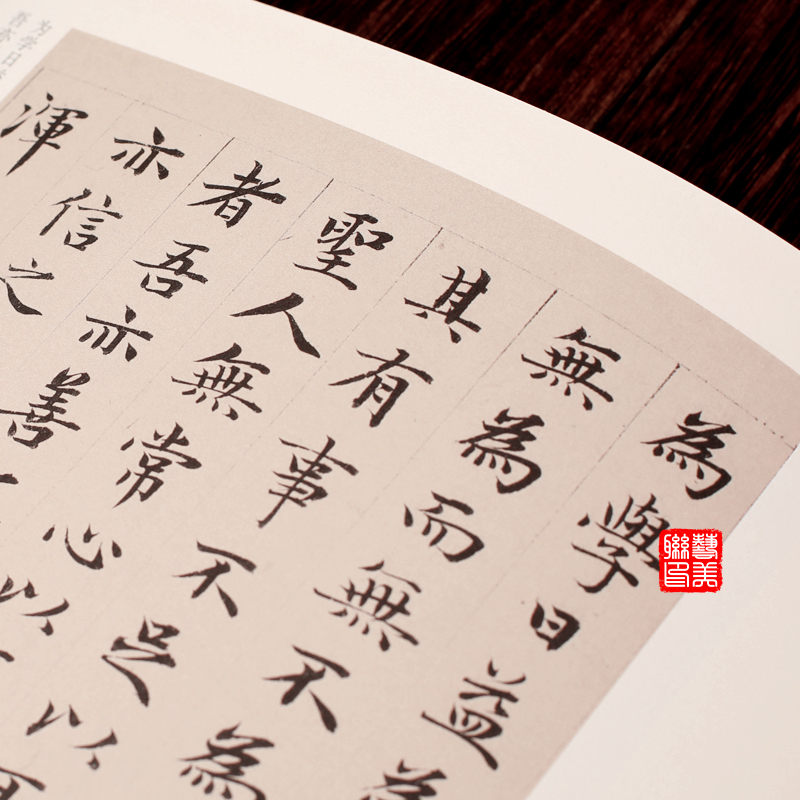 為學日益為
無為而無不為
其有事不足以
聖人無常心以
者吾亦善
亦信之
渾
为学日
吾亦
藝美
聯